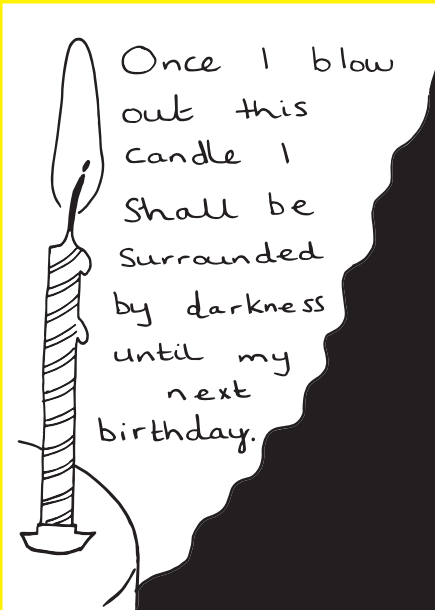 Once I blow
out this
candle I
shall be
surrounded
by darkness
until my
next
birthday.